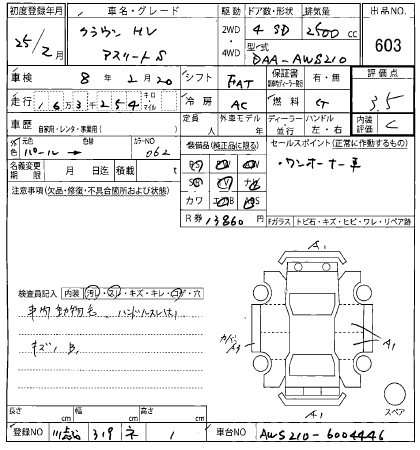 初度登録年月 車名・グレード 駆動 ドア数・形状 排気量 出品NO.
25/2月 クラウン HV アスリートS 2WD・4WD 4 SD 2500 cc 603
型式 DAA-AWS210
車検 8年 2月 20 シフト FAT 保証書 有・無 評価点
走行 163,254 キロ マイル 冷房 AC 燃料 3.5
車歴 自家用・レンタ・事業用( ) 定員 人 外車モデル 年 ディーラー・並行 ハンドル 左・右 内装評価 C
外色 元色 パール 色替 カラーNO 062 装備品(純正品に限る) セールスポイント(正常に作動するもの)
PS PW ・ワンオーナー車
名義変更期限 月 日迄 積載 t SR TV ナビ
注意事項(欠品・修復・不具合箇所および状態) カワ エアB ABS
R券 13860円 Fガラス トビ石・キズ・ヒビ・ワレ・リペア跡
A1
検査員記入 内装 汚レ・スレ・キズ・キレ・コゲ・穴
車内動物毛 ハンドルスレ
A1
キズ
A1
スペア
長さ cm 幅 cm 高さ cm
登録NO 319 ネ 1 車台NO AWS210-6004446